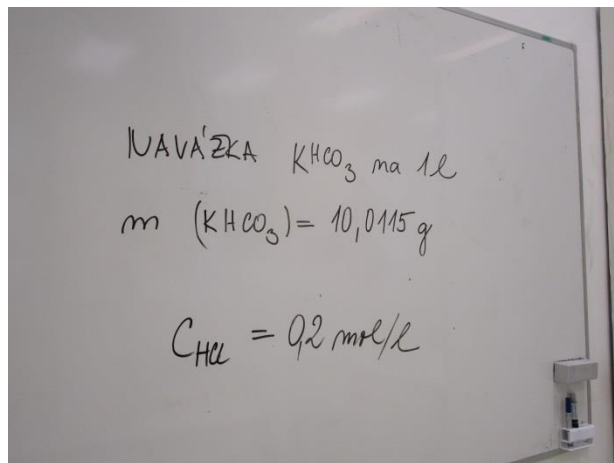 NAVÁZKA KHCO₃ na 1l
m (KHCO₃) = 10,0115 g
C_HCl = 0,2 mol/l